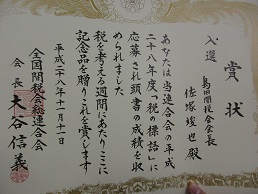 賞状
入選
島田間税会会長
殿
あなたは当連合会の平成
二十八年度「税の標語」に
応募され頭書の成績を収
められました
税を考える週間にあたりここに
記念品を贈りこれを賞します
平成二十八年十一月十一日
全国間税会総連合会
会長 大谷信義